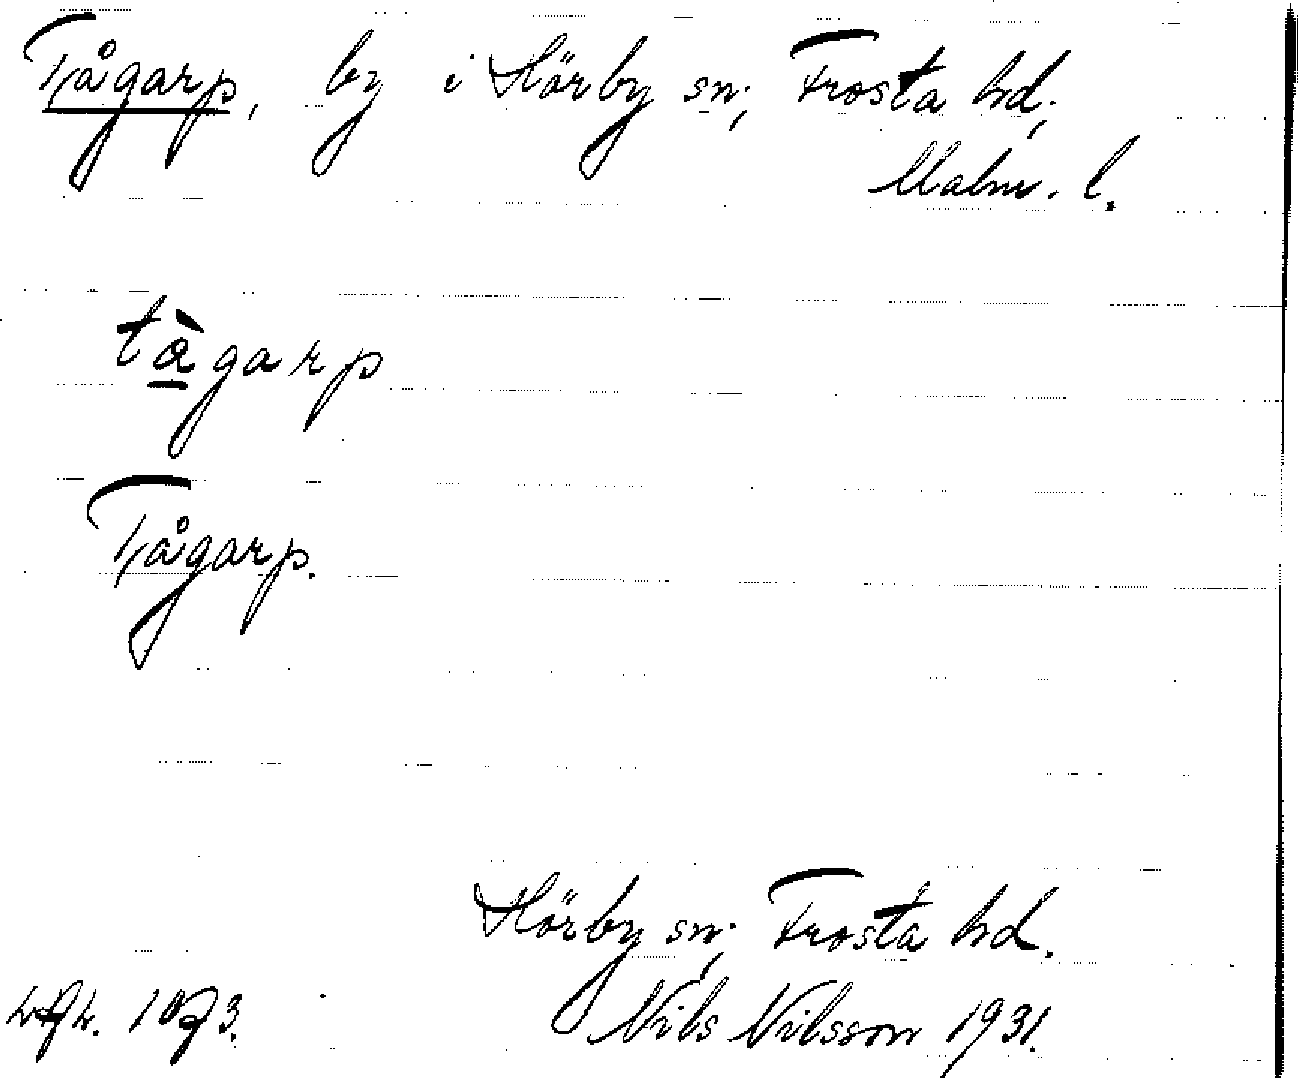 Tågarp, by i Hörby sn; Frosta hd;
Malm. l.
tàgarp
Tågarp.
Hörby sn; Frosta hd.
1073. Nils Nilsson 1931.